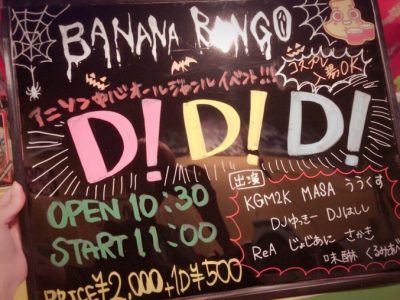 BANANA BONGO
コスプレ
入場OK!
アニソン中心オールジャンルイベント!!!
D! D! D!
OPEN 10:30
START 11:00
PRICE ¥2,000+1D ¥500
出演
KGM2K MASA ううくす
DJゆっきー DJはしし
ReA じょじあに さかき
味醂